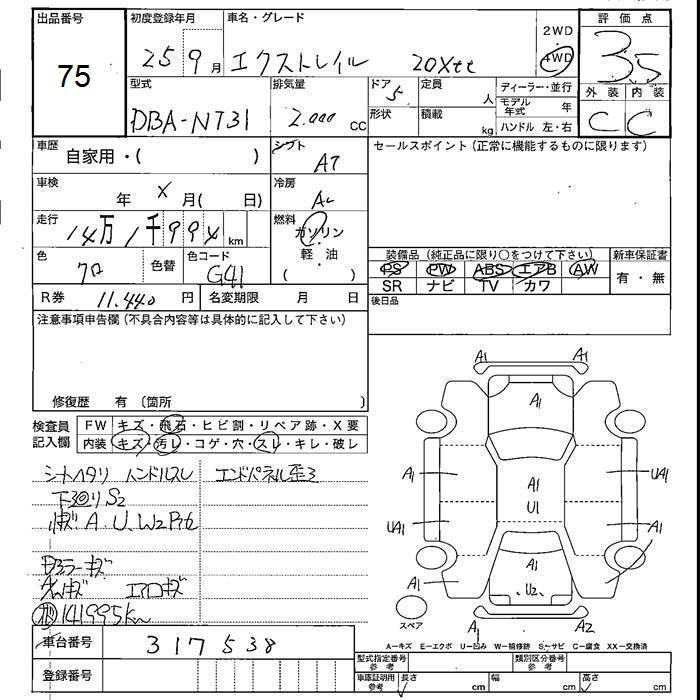 出品番号 初度登録年月 車名・グレード 2WD 評価点
75 25 9月 エクストレイル 20Xtt 4WD 3.5
型式 排気量 ドア 5 定員 人 ディーラー・並行 外装 内装
DBA-NT31 2.000 CC 形状 積載 kg モデル年式 年 C C
ハンドル 左・右
車歴 自家用・( ) シフト AT セールスポイント(正常に機能するものに限ります)
車検 年 X 月( 日) 冷房 AC
走行 14万1千994km 燃料 ガソリン・軽油・( )
色 クロ 色替 色コード G41 装備品(純正品に限り○をつけて下さい) 新車保証書
PS PW ABS エアB AW 有・無
SR ナビ TV カワ
R券 11.440円 名変期限 月 日 後日品
注意事項申告欄(不具合内容等は具体的に記入して下さい)
修復歴 有 (箇所 )
検査員記入欄 FW キズ・飛石・ヒビ割・リペア跡・X要
内装 キズ・汚レ・コゲ・穴・スレ・キレ・破レ
シートヘタリ ハンドルスレ エンドパネル歪ミ
下回りS2
A.U.W2
ドアミラーキズ
エアロキズ
141995km
A1 A1
A1
A1 A1 UA1
U1
UA1 A1
A1 U2
スペア A1 A2
A-キズ E-エクボ U-凹み W-補修跡 S-サビ C-腐食 XX-交換済
車台番号 317538
登録番号
型式指定番号 参考 類別区分番号 参考
車庫証明用 参考 長さ cm 幅 cm 高さ cm